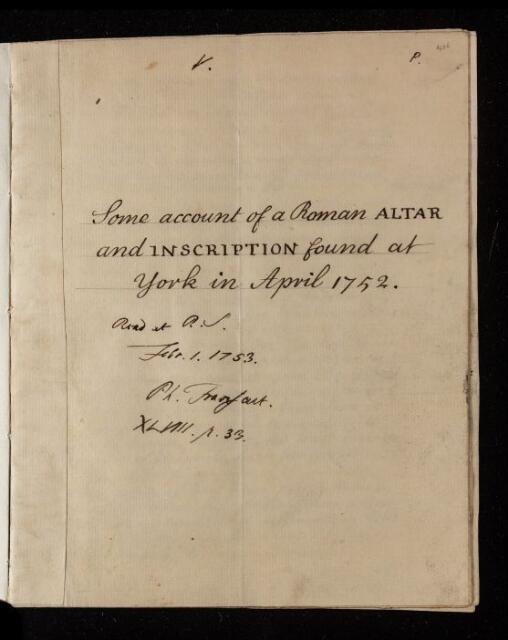 V.
P.
Some account of a Roman ALTAR
and INSCRIPTION found at
York in April 1752.
Read at R.S.
Febr. 1. 1753.
Ph. Transact.
XLVIII. p. 33.